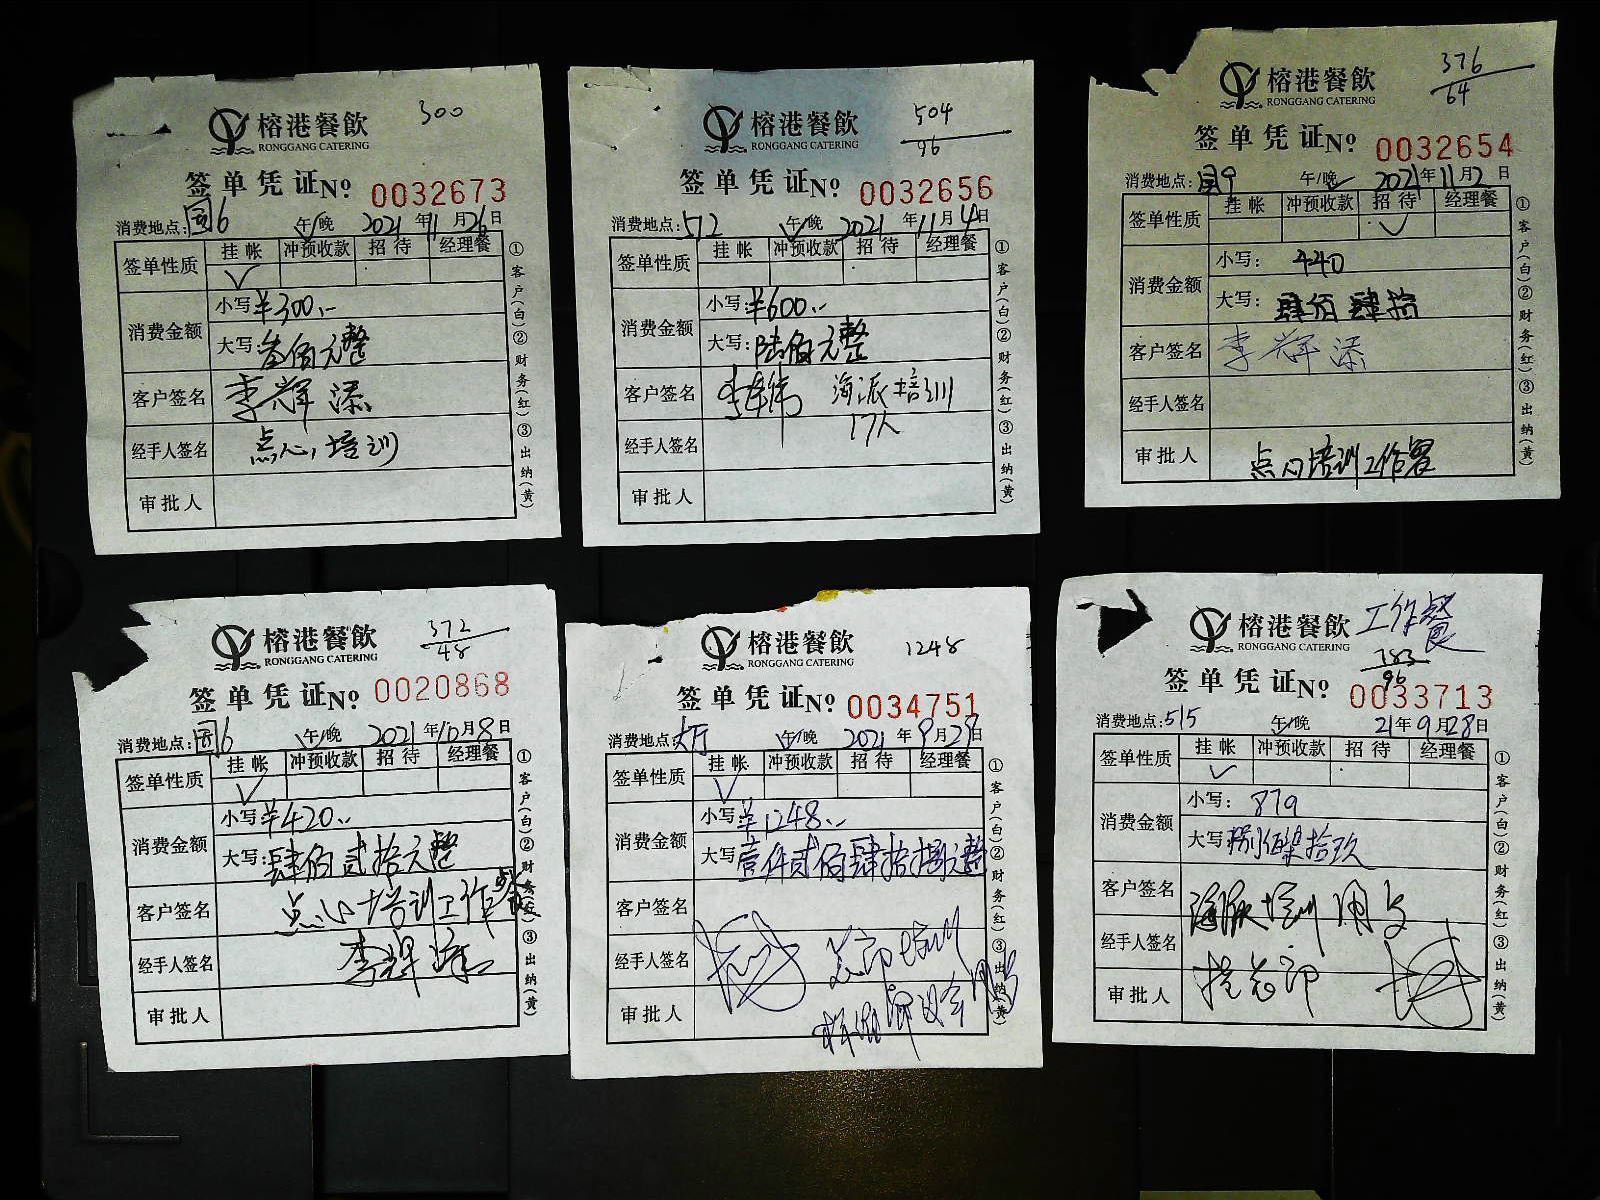 榕港餐飲
RONGGANG CATERING
300
签单凭证No 0032673
消费地点:国6 午/晚 2021年11月26日
签单性质 挂帐 冲预收款 招待 经理餐
消费金额 小写:¥300.-
大写:叁佰元整
客户签名 李辉添
经手人签名 点心培训
审批人
①客户(白)②财务(红)③出纳(黄)
榕港餐飲
RONGGANG CATERING
504
96
签单凭证No 0032656
消费地点:512 午/晚 2021年11月4日
签单性质 挂帐 冲预收款 招待 经理餐
消费金额 小写:¥600.-
大写:陆佰元整
客户签名 海派培训
17人
经手人签名
审批人
①客户(白)②财务(红)③出纳(黄)
榕港餐飲
RONGGANG CATERING
376
64
签单凭证No 0032654
消费地点:国9 午/晚 2021年11月2日
签单性质 挂帐 冲预收款 招待 经理餐
消费金额 小写:440
大写:肆佰肆拾
客户签名 李辉添
经手人签名
审批人 点心培训工作餐
①客户(白)②财务(红)③出纳(黄)
榕港餐飲
RONGGANG CATERING
372
48
签单凭证No 0020868
消费地点:国6 午/晚 2021年10月8日
签单性质 挂帐 冲预收款 招待 经理餐
消费金额 小写¥420.-
大写:肆佰贰拾元整
客户签名 点心培训工作餐
经手人签名 李辉添
审批人
①客户(白)②财务(红)③出纳(黄)
榕港餐飲
RONGGANG CATERING
1248
签单凭证No 0034751
消费地点:大厅 午/晚 2021年9月29日
签单性质 挂帐 冲预收款 招待 经理餐
消费金额 小写¥1248.-
大写:壹仟贰佰肆拾捌元整
客户签名
经手人签名
审批人
①客户(白)②财务(红)③出纳(黄)
榕港餐飲 工作餐
RONGGANG CATERING
783
96
签单凭证No 0033713
消费地点:515 午/晚 21年9月28日
签单性质 挂帐 冲预收款 招待 经理餐
消费金额 小写:879
大写:捌佰柒拾玖
客户签名 海派培训用
经手人签名
审批人
①客户(白)②财务(红)③出纳(黄)